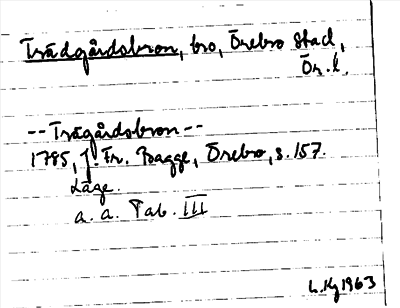 Trädgårdsbron, bro, Örebro stad,
Ör. l.
-- Trägårdsbron --
1785, Fr. Bagge, Örebro, s. 157.
Läge.
a. a. Tab. III
L. Kg 1963